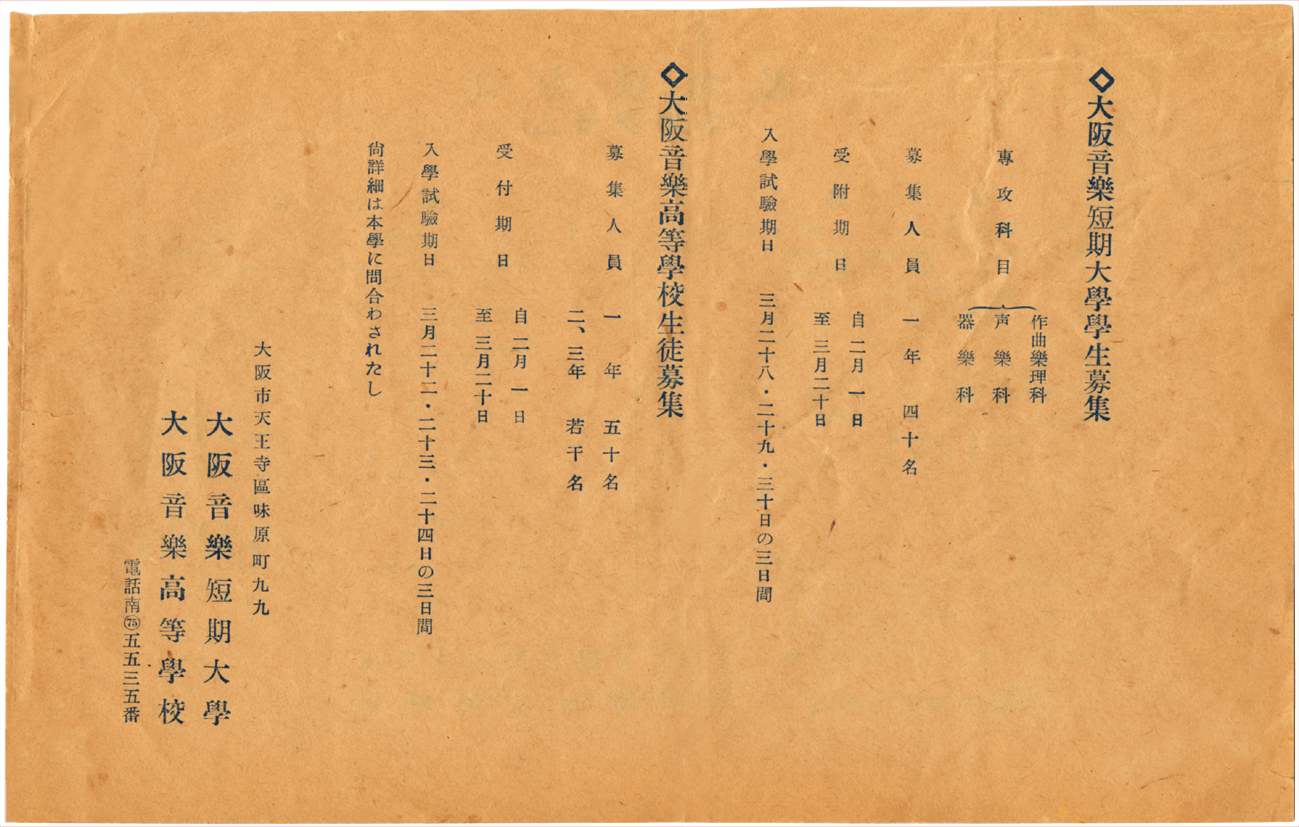 ◇大阪音樂短期大學學生募集
專攻科目
作曲樂理科
声樂科
器樂科
募集人員 一年 四十名
受附期日
自 二月一日
至 三月二十日
入學試驗期日 三月二十八・二十九・三十日の三日間
◇大阪音樂高等學校生徒募集
募集人員 一年 五十名
二、三年 若干名
受付期日
自 二月一日
至 三月二十日
入學試驗期日 三月二十二・二十三・二十四日の三日間
尙詳細は本學に問合わされたし
大阪市天王寺區味原町九九
大阪音樂短期大學
大阪音樂高等學校
電話南(75)五五三五番